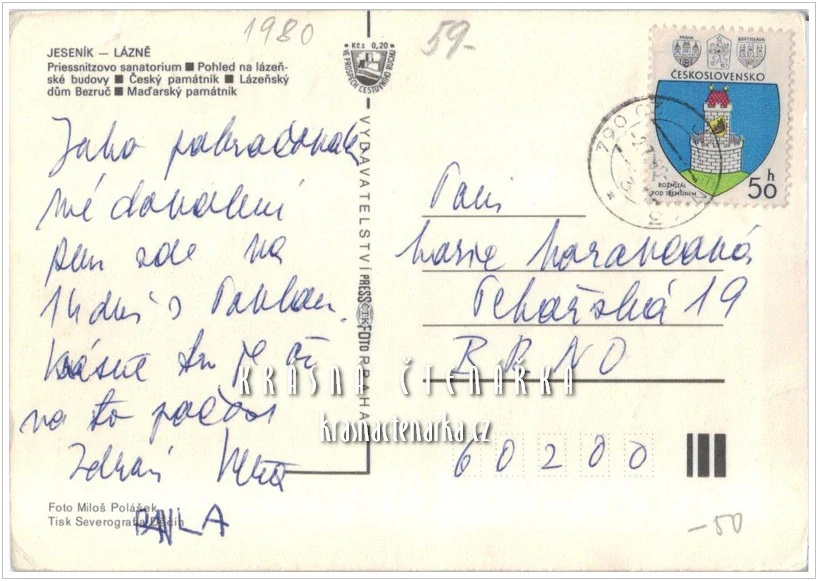 1980
59-
JESENÍK – LÁZNĚ
Priessnitzovo sanatorium ■ Pohled na lázeň-
ské budovy ■ Český památník ■ Lázeňský
dům Bezruč ■ Maďarský památník
Kčs 0,20
VE PROSPĚCH CESTOVNÍHO RUCHU
VYDAVATELSTVÍ PRESSFOTO PRAHA
PRAHA
BRATISLAVA
ČESKOSLOVENSKO
ROŽMITÁL
POD TŘEMŠÍNEM
50 h
790
Jako pokračování
mé dovolené
jsem zde na
14 dní s
Krásné tu je
na to počasí
Zdraví
PAVLA
Paní
Marie
Pekařská 19
BRNO
60200
KRÁSNÁ ČTENÁŘKA
krasnactenarka.cz
Foto Miloš Polášek
Tisk Severografia Děčín
-50